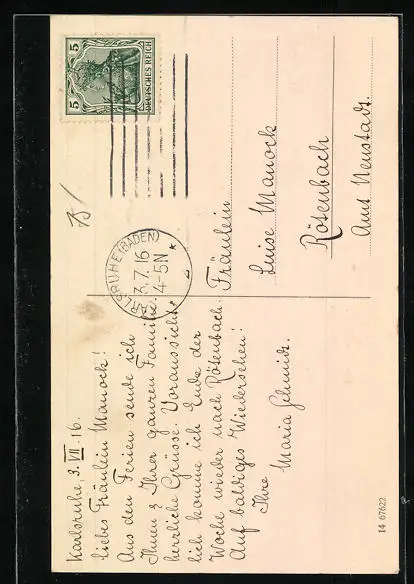 Karlsruhe, 3. VII. 16.
liebes Fräulein Manock!
Aus den Ferien sende ich
Ihnen & Ihrer ganzen Familie
herrliche Grüsse. Voraussicht-
lich komme ich Ende der
Woche wieder nach Rötenbach.
Auf baldiges Wiedersehen!
Ihre
Maria Schmidt.
5 5
DEUTSCHES REICH
KARLSRUHE (BADEN)
3.7.16
4-5N
* 2 *
Fräulein
Luise Manock
Rötenbach
Amt Neustadt.
14 67622